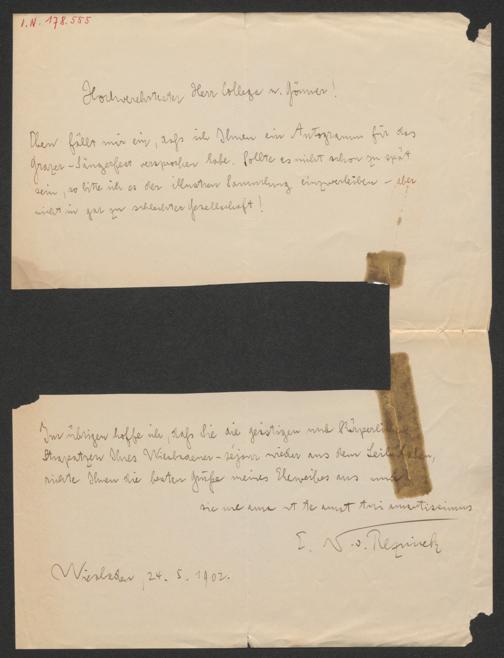 I.N. 178.555
Hochverehrtester Herr College u. Gönner!
Eben fällt mir ein, daſs ich Ihnen ein Autogramm für das
Grazer-Sängerfest versprochen habe. Sollte es nicht schon zu spät
sein, so bitte ich es der illustren Sammlung einzuverleiben – aber
nicht in gar zu schlechter Gesellschaft!
Im übrigen hoffe ich, daſs Sie die geistigen und Körperlichen
Strapatzen Ihres Wiesbadener-séjour wieder aus dem Leibe haben,
richte Ihnen die besten Grüße meines Eheweibes aus und
sic me ama ut te amat tui amantissimus
E. N. v. Reznicek
Wiesbaden, 24. 5. 1902.